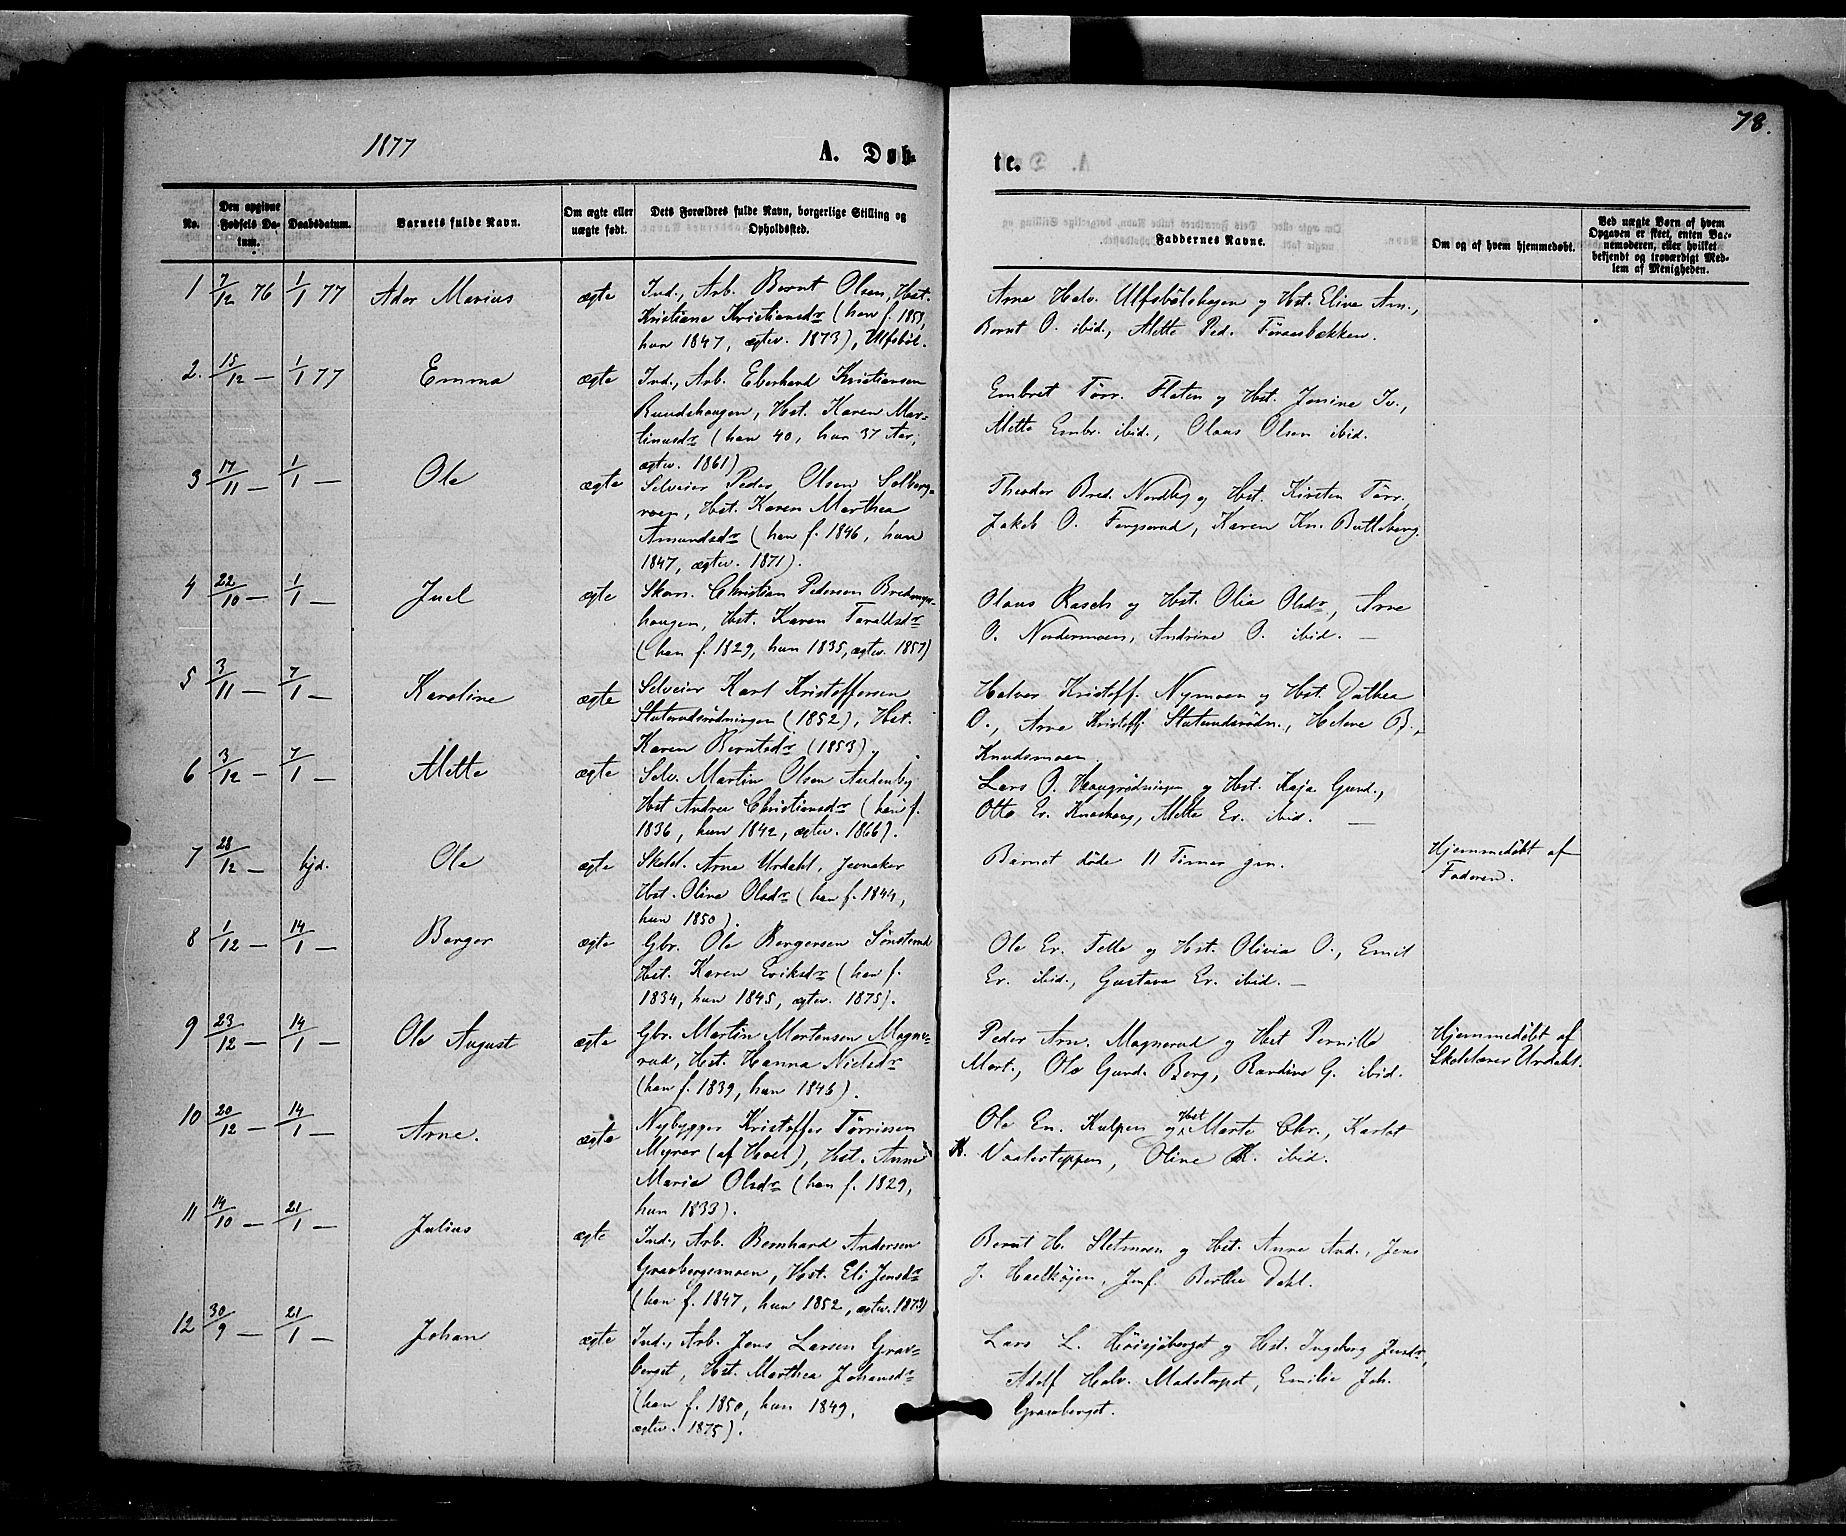 78.
1877
A. Døb-
te.
No.
Den opgivne Fødsels Datum.
Daabsdatum.
Barnets fulde Navn.
Om ægte eller uægte født.
Dets Forældres fulde Navn, borgerlige Stilling og Opholdssted.
Faddernes Navne.
Om og af hvem hjemmedøbt.
Ved uægte Børn af hvem Opgaven er skeet, enten Barnemoderen, eller hvilket bekjendt og troværdigt Medlem af Menigheden.
1 7/12 76 1/1 77 Ador Marius ægte
Ind., Arb. Bernt Olsen, Hst.
Kristiane Kristiansdr (han f. 1853,
hun 1847, ægtev. 1873), Ulfsböl.
Arne Halv. Ulfsbölshagen og Hst. Eline Arn.,
Bernt O. ibid., Mette Ped. Föraasbækken.
2. 15/12 — 1/1 77 Emma ægte
Ind., Arb. Eberhard Kristiansen
Rundshaugen, Hst. Karen Mar-
tinusdr (han 40, hun 37 Aar,
ægtev. 1861)
Embret Törr. Flaten og Hst. Jonine Iv.,
Mette Embr. ibid., Olaus Olsen ibid.
3 17/11 — 1/1 — Ole ægte
Selveier Peder Olsen Solberg-
roen, Hst. Karen Marthea
Amundsdr (han f. 1846, hun
1847, ægtev. 1871).
Theodor Bred. Nordby og Hst. Kirsten Törr.
Jakob O. Fergsrud, Karen Kn. Butleberg.
4 22/10 — 1/1 — Juel ægte
Skom. Christian Pedersen
haugen, Hst. Karen Taraldsdr
(han f. 1829, hun 1835, ægtev. 1857)
Olaus Rasch og Hst. Olia Olsdr, Arne
O. Nordermoen, Andrine O. ibid. —
5 3/11 — 7/1 — Karoline ægte
Selveier Karl Kristoffersen
Slaterudsrödningen (1852), Hst.
Karen Berntsdr (1853)
Halvor Kristoff. Nymoen og Hst. Dathea
O., Arne Kristoff. Slaterudsrödn., Helene B.
Knudsmoen.
6 3/12 — 7/1 — Mette ægte
Selv. Martin Olsen Audenby
Hst Andrea Christiansdr (han f.
1836, hun 1842, ægtev. 1866).
Lars O. Haugrödningen og Hst. Kaja Gund.,
Otto Er. Knashaug, Mette Er. ibid. —
7 28/12 — hjd. Ole ægte
Skolel. Arne Urdahl, Jevnaker
Hst. Oline Olsdr (han f. 1844,
hun 1850)
Barnet döde 11 Timer gm.
Hjemmedöbt af
Faderen.
8 1/12 — 14/1 — Berger ægte
Gbr. Ole Bergersen Sönsterud
Hst. Karen Eriksdr (han f.
1834, hun 1845, ægtev. 1875).
Ole Er. Telle og Hst. Olivia O., Emil
Er. ibid., Gustava Er. ibid. —
9 23/12 — 14/1 — Ole August ægte
Gbr. Martin Mortensen Magne-
rud, Hst. Hanna Nielsdr
(han f. 1839, hun 1846).
Peder Arn. Magnerud og Hst Pernille
Mort., Ole Gund. Berg, Randine G. ibid.
Hjemmedöbt af
Skolelærer Urdahl.
10 20/12 — 14/1 — Arne. ægte
Nybygger Kristoffer Törrissen
Myrer (af Hoel), Hst. Anne
Maria Olsdr (han f. 1829,
hun 1833).
Ole En. Kulpen og Hst Marte Chr., Karlot
K. Vaalerteppen, Oline K. ibid.
11 14/10 — 21/1 — Julius ægte
Ind., Arb. Bernhard Andersen
Gravbergsmoen, Hst. Eli Jensdr
(han f. 1847, hun 1852, ægtev. 1873)
Bernt H. Sletmoen og Hst. Anne And., Jens
J. Haelköjen, Jmf. Berthe Dahl.
12 30/9 — 21/1 — Johan ægte
Ind., Arb. Jens Larsen Grav-
berget, Hst. Marthea Johansdr
(han f. 1850, hun 1849,
ægtev. 1875).
Lars L. Höisjöberget og Hst. Ingeborg Jensdr,
Adolf Halv. Madstapet, Emilie Joh.
Gravberget.